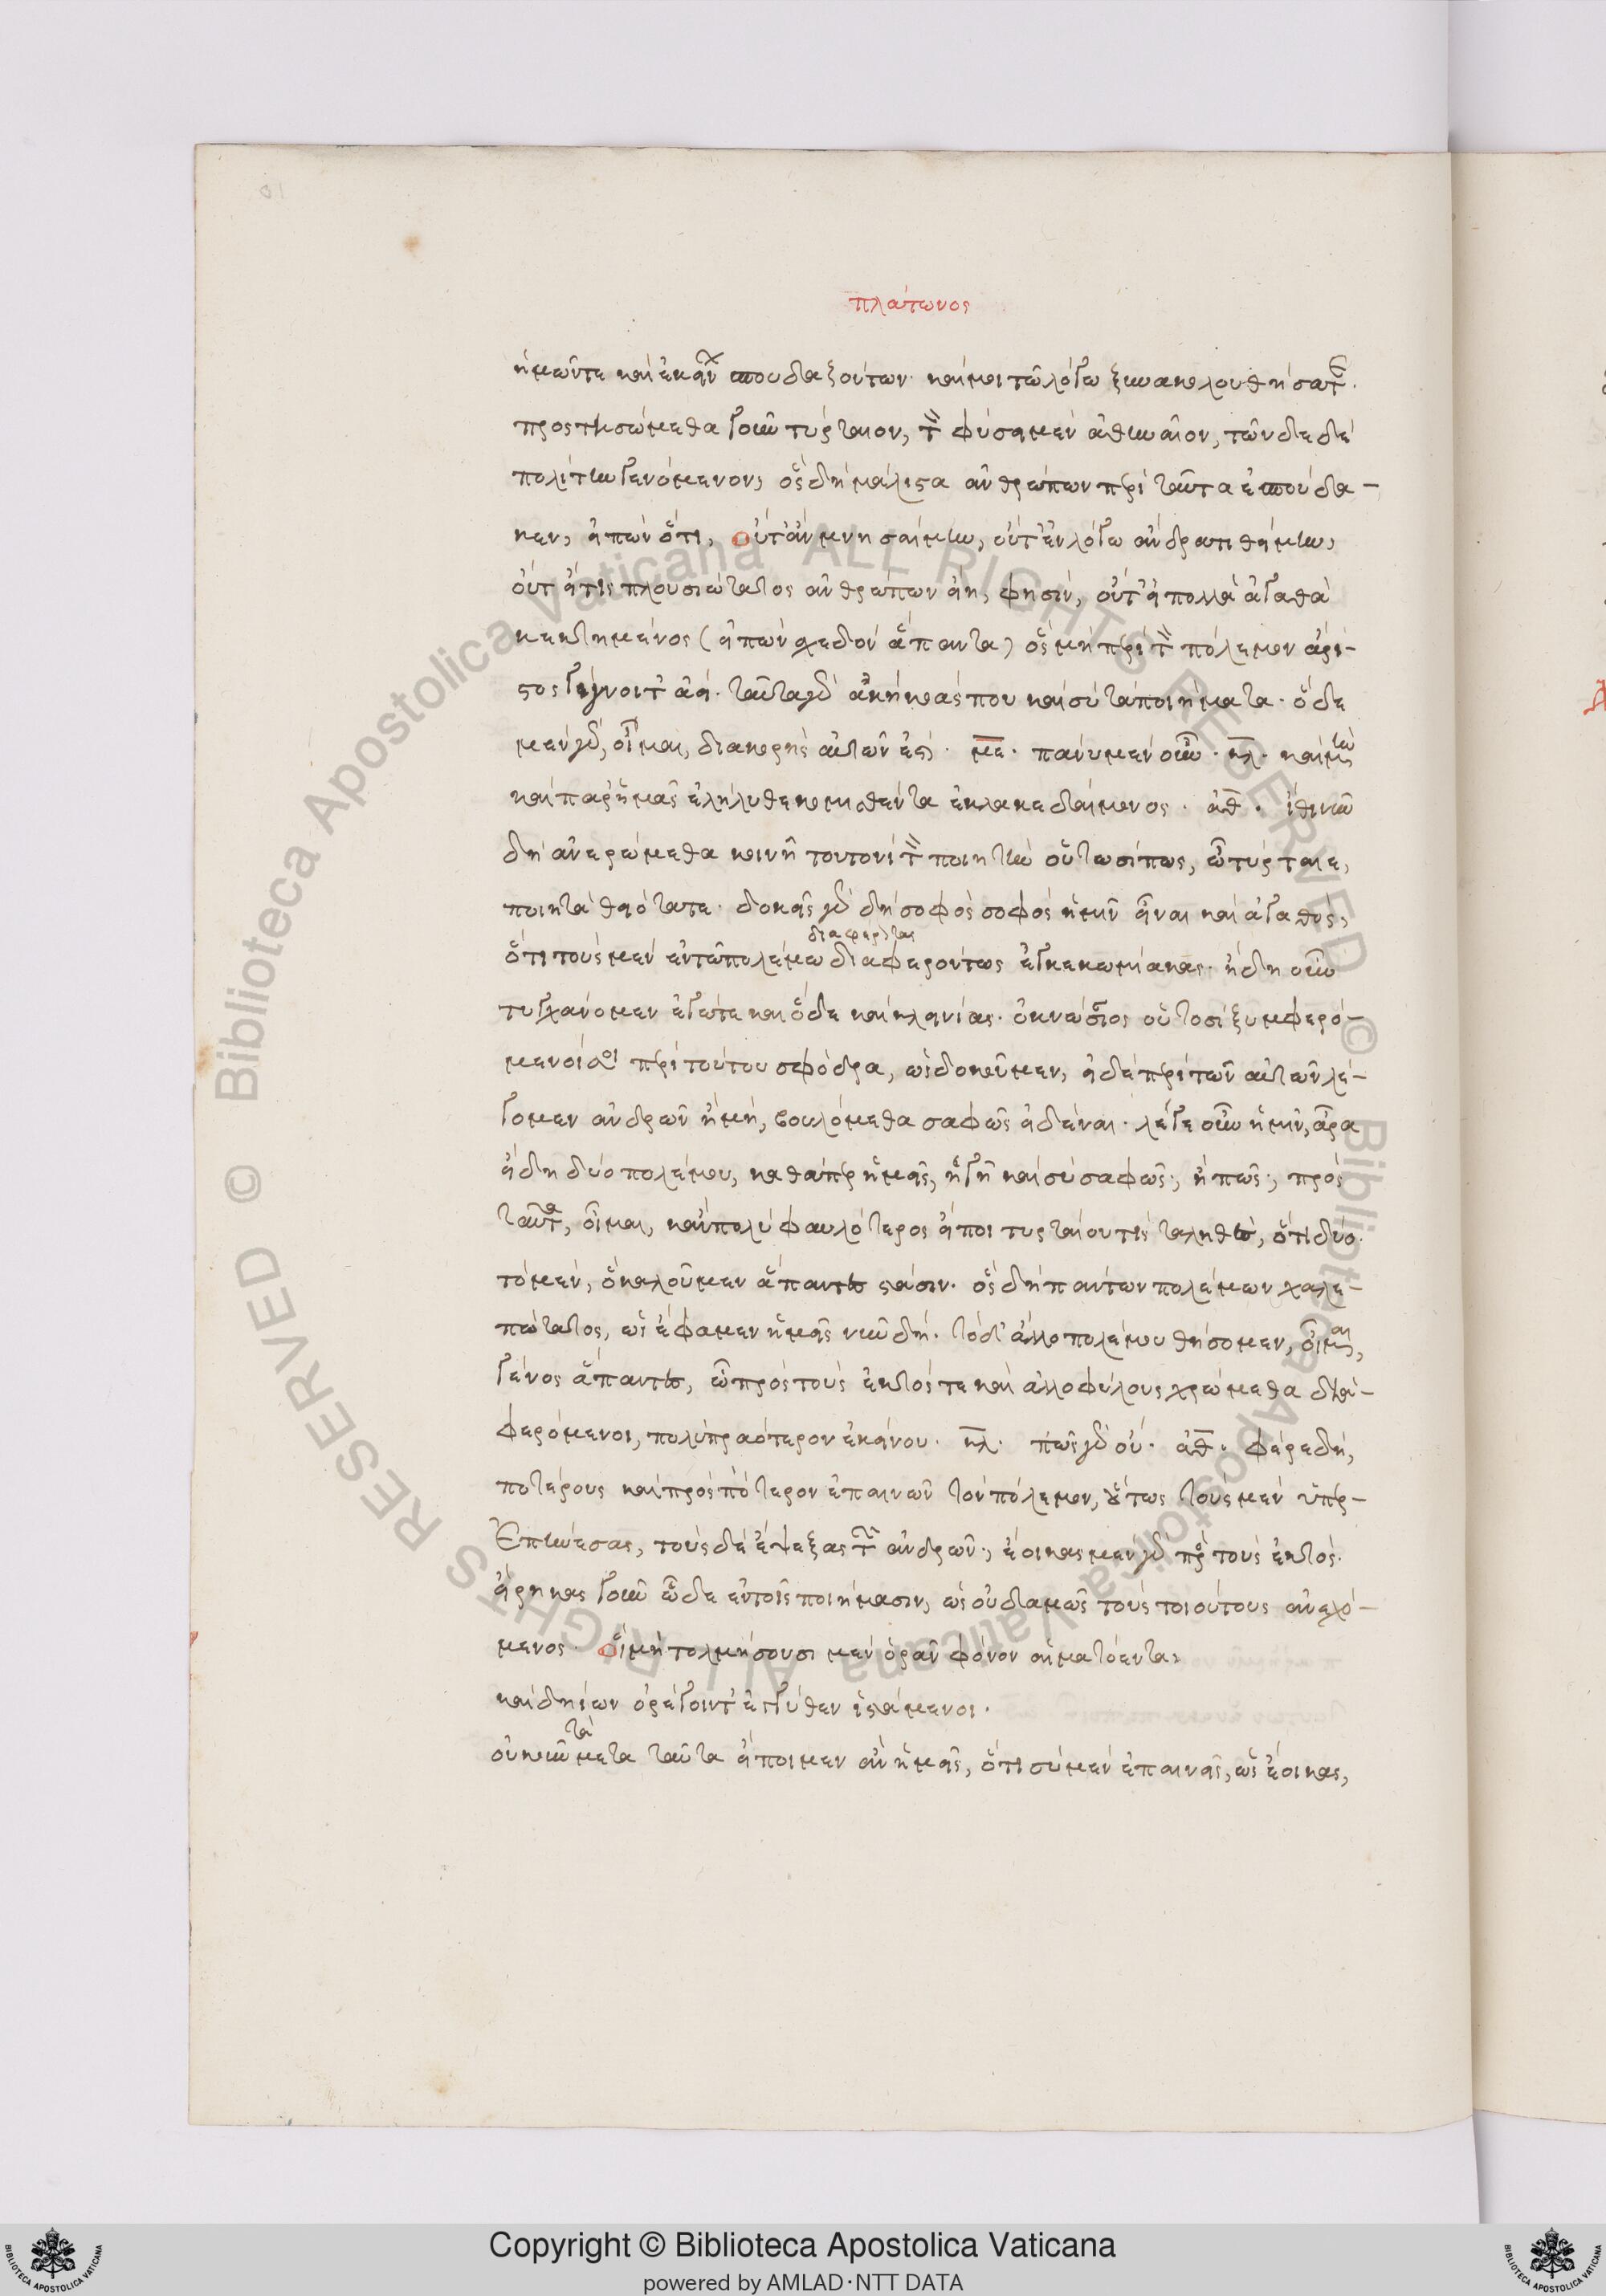 πλάτωνος
ἡμῶντε καὶ ἐκείνων σπουδαζόντων. καί μοι τῷ λόγῳ ξυνακολουθήσατε.
προστησώμεθα γοῦν τυρταῖον, τὸν φύσει μὲν ἀθηναῖον, τῶν δε δὲ
πολίτην γενόμενον, ὃς δὴ μάλιστα ἀνθρώπων περὶ ταῦτα ἐσπούδα-
κεν, εἰπὼν ὅτι, οὔτ' ἂν μνησαίμην, οὔτ' ἐν λόγῳ ἄνδρα τιθείμην,
οὔτ' εἴ τις πλουσιώτατος ἀνθρώπων εἴη, φησὶν, οὔτ' εἰ πολλὰ ἀγαθὰ
κεκτημένος (εἰπὼν σχεδὸν ἅπαντα) ὃς μὴ περὶ τὸν πόλεμον ἄρι-
στος γίγνοιτ' ἀεί. ταῦτα γὰρ ἀκήκοάς που καὶ σὺ τὰ ποιήματα. ὅδε
μὲν γὰρ, οἶμαι, διακορὴς αὐτῶν ἐστί. με. πάνυ μὲν οὖν. κλ. καὶ μὴν
καὶ παρ' ἡμᾶς ἐλήλυθε κομισθέντα ἐκ λακεδαίμονος. ἀθ. ἴθι νῦν
δὴ ἀνερώμεθα κοινῇ τουτονὶ τὸν ποιητὴν οὑτωσί πως, ὦ τύρταιε,
ποιητὰ θειότατε. δοκεῖς γὰρ δὴ σοφὸς σοφὸς ἡμῖν εἶναι καὶ ἀγαθὸς,
διαφέροντας
ὅτι τοὺς μὲν ἐν τῷ πολέμῳ διαφερόντως ἐγκεκωμίακας. ἤδη οὖν
τυγχάνομεν ἐγώ τε καὶ ὅδε καὶ κλεινίας. ὁ κνώσσιος οὑτοσὶ ξυμφερό-
μενοί σοι περὶ τούτου σφόδρα, ὡς δοκοῦμεν, εἰ δὲ περὶ τῶν αὐτῶν λέ-
γομεν ἀνδρῶν ἢ μὴ, βουλόμεθα σαφῶς εἰδέναι. λέγε οὖν ἡμῖν, ἆρα
εἴδη δύο πολέμου, καθάπερ ἡμεῖς, ἡγῇ καὶ σὺ σαφῶς; ἢ πῶς; πρὸς
ταῦτα, οἶμαι, κἂν πολὺ φαυλότερος εἴποι τυρταίου τὶς τἀληθὲς, ὅτι δύο.
τὸ μὲν, ὃ καλοῦμεν ἅπαντες στάσιν. ὃς δὴ πάντων πολέμων χαλε-
πώτατος, ὡς ἔφαμεν ἡμεῖς νῦν δή. τὸ δ' ἄλλο πολέμου θήσομεν, οἶμαι,
γένος ἅπαντες, ᾧ πρὸς τοὺς ἐκτός τε καὶ ἀλλοφύλους χρώμεθα δια-
φερόμενοι, πολὺ πραότερον ἐκείνου. κλ. πῶς γὰρ οὔ. ἀθ. φέρε δὴ,
ποτέρους καὶ πρὸς πότερον ἐπαινῶν τὸν πόλεμον, οὕτως τοὺς μὲν ὑπερ-
επῄνεσας, τοὺς δὲ ἔψεξας τῶν ἀνδρῶν; ἔοικας μὲν γὰρ πρὸς τοὺς ἐκτός.
εἴρηκας γοῦν ὧδε ἐν τοῖς ποιήμασιν, ὡς οὐδαμῶς τοὺς τοιούτους ἀνεχό-
μενος. οἳ μὴ τολμήσουσι μὲν ὁρᾶν φόνον αἱματόεντα,
καὶ δηίων ὀρέγοιντ' ἐγγύθεν ἱστάμενοι.
οὐκοῦν τὰ μετα ταῦτα εἴποιμεν ἂν ἡμεῖς, ὅτι σὺ μὲν ἐπαινεῖς, ὡς ἔοικας,
Copyright © Biblioteca Apostolica Vaticana
powered by AMLAD·NTT DATA